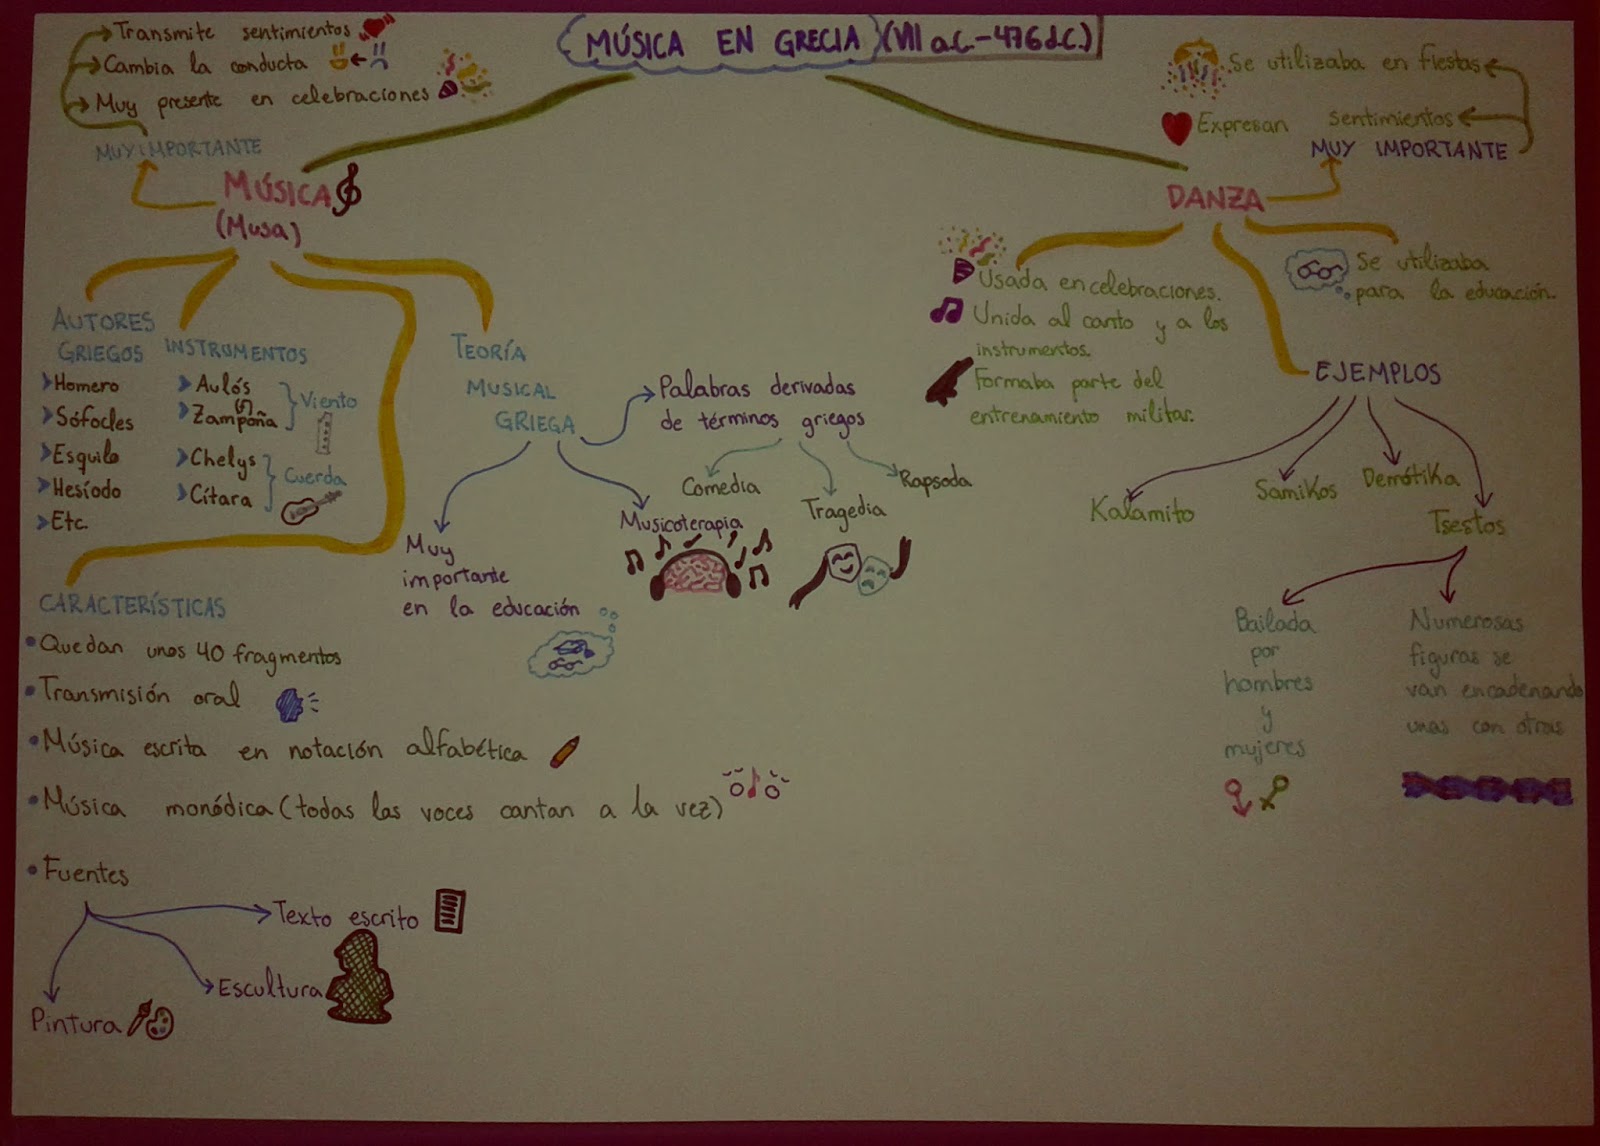 MÚSICA EN GRECIA (VII a.C.-476 d.C.)
Transmite sentimientos
Cambia la conducta
Muy presente en celebraciones
MUY IMPORTANTE
MÚSICA
(Musa)
AUTORES
GRIEGOS
Homero
Sófocles
Esquilo
Hesíodo
Etc.
INSTRUMENTOS
Aulós
Zampoña
Viento
Chelys
Cítara
Cuerda
TEORÍA
MUSICAL
GRIEGA
Palabras derivadas
de términos griegos
Comedia
Tragedia
Rapsoda
Musicoterapia
Muy
importante
en la educación
CARACTERÍSTICAS
Quedan unos 40 fragmentos
Transmisión oral
Música escrita en notación alfabética
Música monódica (todas las voces cantan a la vez)
Fuentes
Texto escrito
Escultura
Pintura
Se utilizaba en fiestas
Expresan sentimientos
MUY IMPORTANTE
DANZA
Usada en celebraciones.
Unida al canto y a los
instrumentos.
Formaba parte del
entrenamiento militar.
Se utilizaba
para la educación.
EJEMPLOS
Kalamito
Samikos
Demótika
Tsestos
Bailada
por
hombres
y
mujeres
Numerosas
figuras se
van encadenando
unas con otras